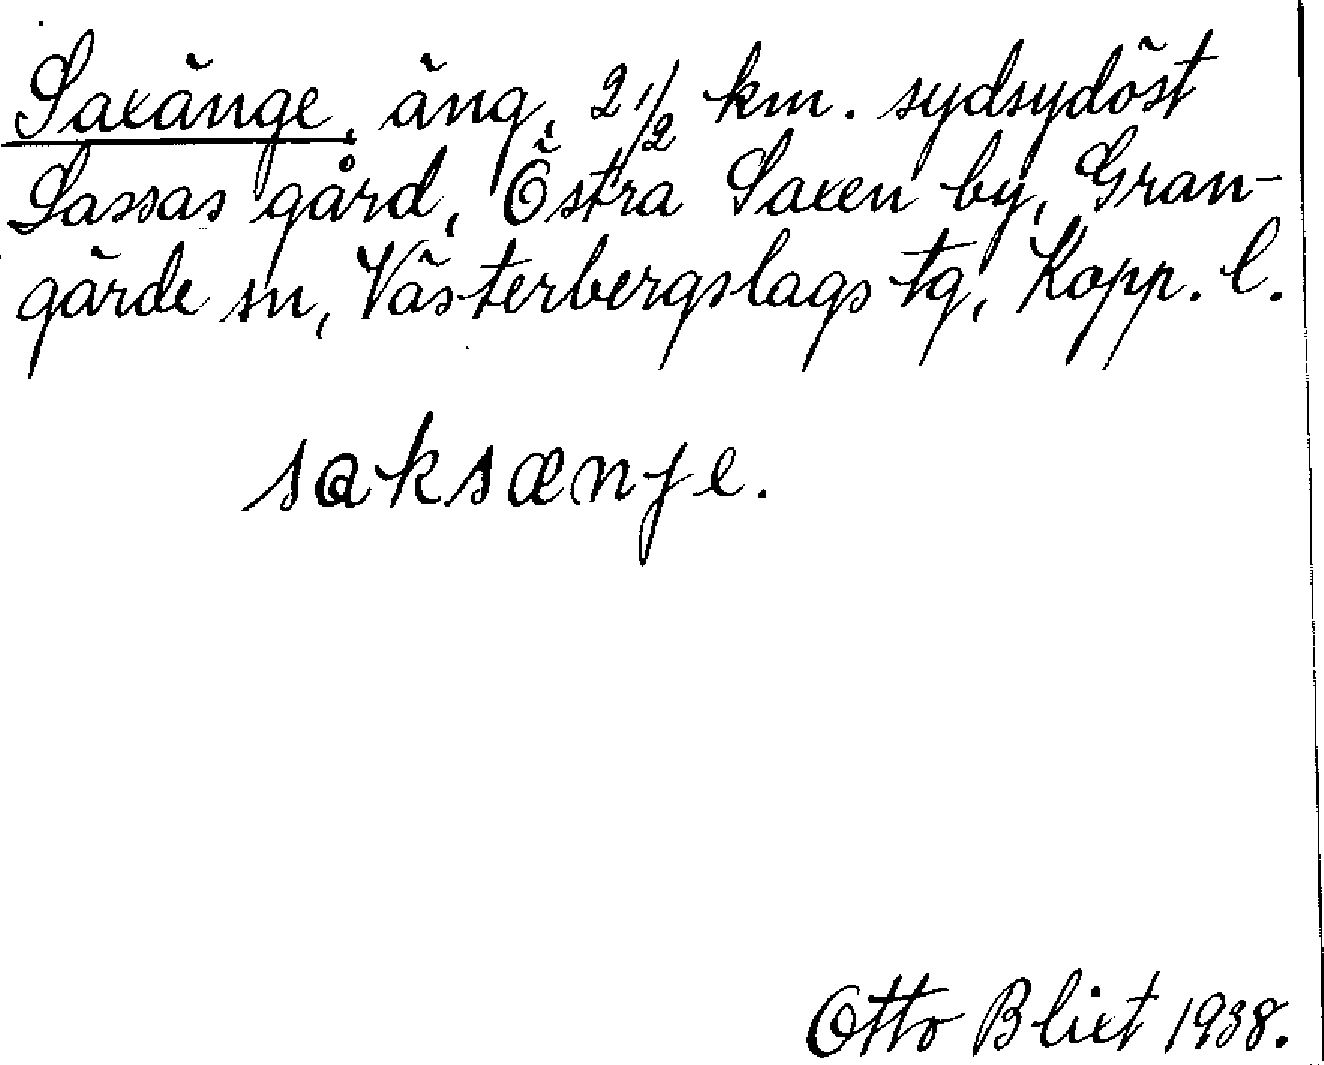 Saxänge, äng, 2 1/2 km. sydsydöst
Lassas gård, Östra Saxen by, Gran-
gärde sn, Västerbergslags tg, Kopp. l.
saksænje.
Otto Blixt 1938.